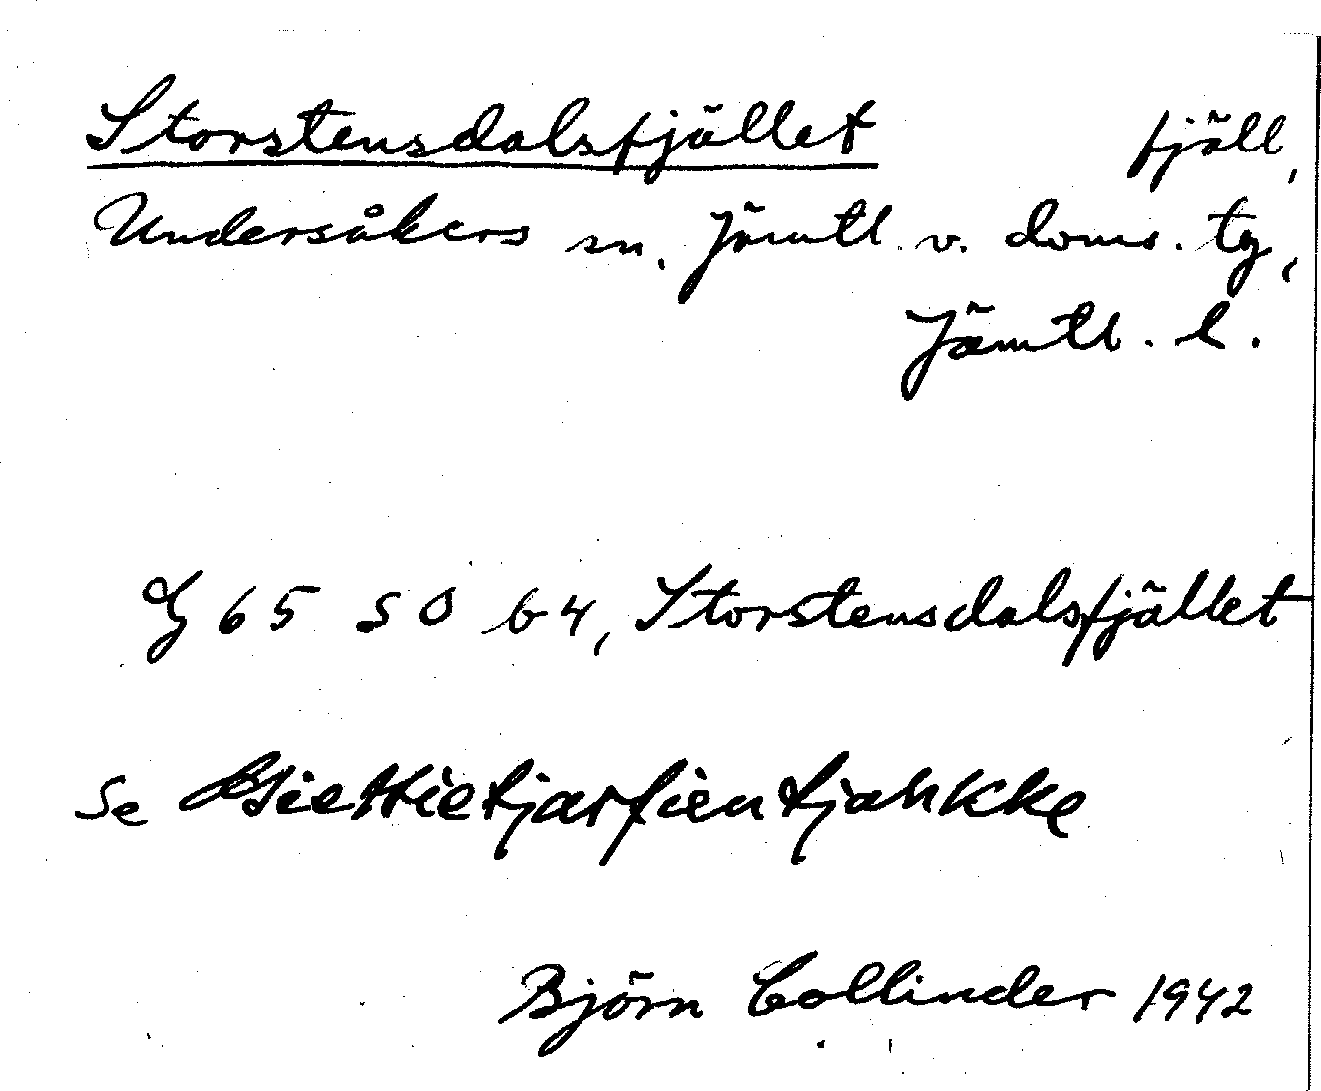 Storstensdalsfjället fjäll,
Undersåkers sn. Jämtl. v. doms. tg,
Jämtl. l.
G 65 SO b4, Storstensdalsfjället
Se
Björn Collinder 1942